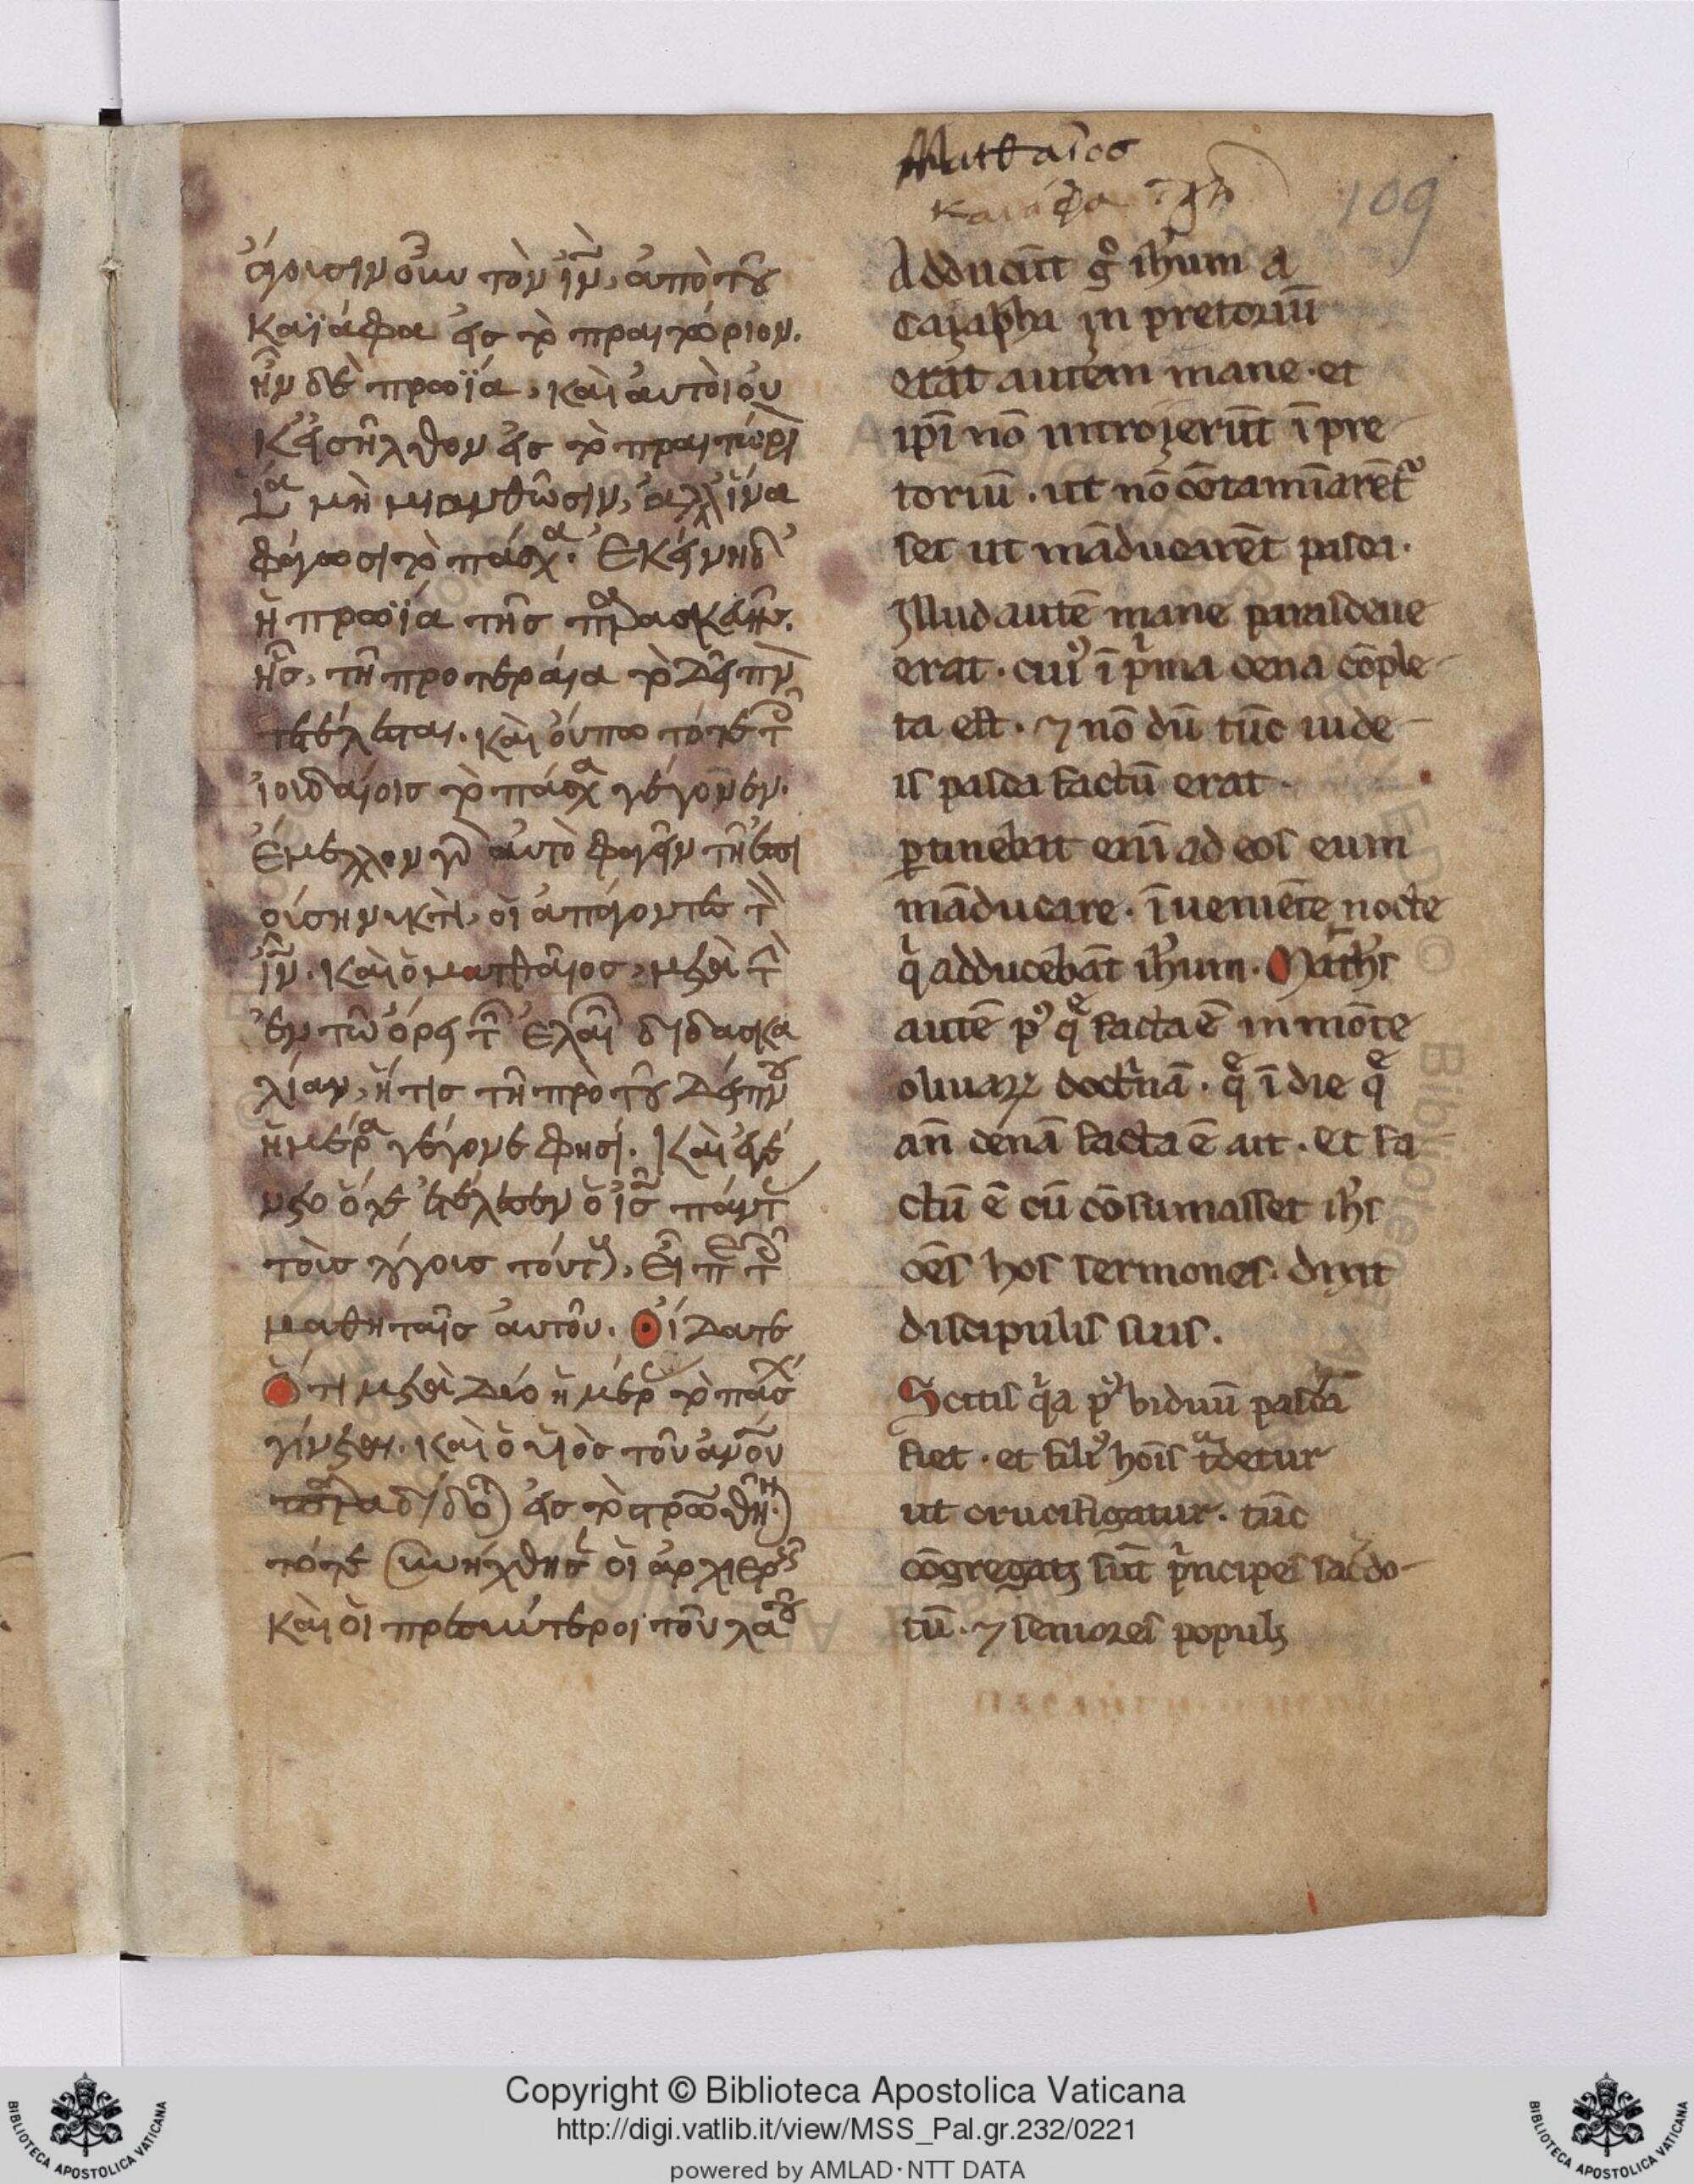 Matthaῖος
καιάφα
109
ἄγουσιν οὖν τὸν ἰν̃, ἀπὸ τοῦ
Καϊάφα εἰς τὸ πραιτώριον.
ἦν δὲ πρωΐα, καὶ αὐτοὶ οὐ
κ εἰσῆλθον εἰς τὸ πραιτώρι
ἵνα μὴ μιανθῶσιν, ἀλλ' ἵνα
φάγωσι τὸ πάσχα. Ἐκείνη δ'
ἡ πρωΐα τῆς παρασκευῆς
ἧς, τῇ προτεραία τὸ δεῖπν
τετέλεσται. καὶ οὔπω τότε τ
ἰουδαίοις τὸ πάσχα γέγονεν.
Ἔμελλον γὰρ αὐτὸ φαγεῖν τῇ ἐπι
ούσῃ νυκτὶ, οἱ ἀπάγοντες τ
ἰν̃. Καὶ ὁ ματθαῖος, μετὰ τ
ἐν τῶ ὄρει τ ἐλαι διδασκα
λίαν, ἥτις τῇ πρὸ τοῦ δείπν
ἡμέρα γέγονε φησί. Καὶ ἐγέ
νετο ὅτε ἐτέλεσεν ὁ ἰς̃ πάντ
τοὺς λόγους τούτ, εἶπε τ
μαθηταῖς αὐτοῦ. Οἴδατε
ὅτι μετὰ δύο ἡμέρ τὸ πάσχ
γίνεται. καὶ ὁ υἱὸς τοῦ ἀνου
παραδίδο εἰς τὸ σταυρωθῆν
τότε συνήχθησ οἱ ἀρχιερ
Καὶ οἱ πρεσβύτεροι τοῦ λαοῦ
Adducūt g° ihum a
Caiapha in pretoriū
erat autem mane · et
ipi nō introierūt ī pre
toriū · ut nō cōtamīarēt
set ut māducarēt pasca ·
Illud autē mane parasceue
erat · cui' ī prima cena cōple
ta est · ⁊ nō dū tūc iude
is pasca factū erat ·
ptinebat enī ad eos eum
māducare · ī ueniēte nocte
q adducebāt ihum · Maths
autē p' q facta ē in mōte
oliuaꝝ doctnā · q ī die q
an̄ cenā facta ē ait · et fa
ctū ē cū cōsumasset ihs
oēs hos sermones · dixit
discipulis suis ·
Scitis qa p' biduū pasca
fiet · et fili' hoīs tdetur
ut crucifigatur · tūc
cōgregati sūt pncipes sacdo
tū · ⁊ seniores populi
Copyright © Biblioteca Apostolica Vaticana
http://digi.vatlib.it/view/MSS_Pal.gr.232/0221
powered by AMLAD·NTT DATA
BIBLIOTECA APOSTOLICA VATICANA
BIBLIOTECA APOSTOLICA VATICANA